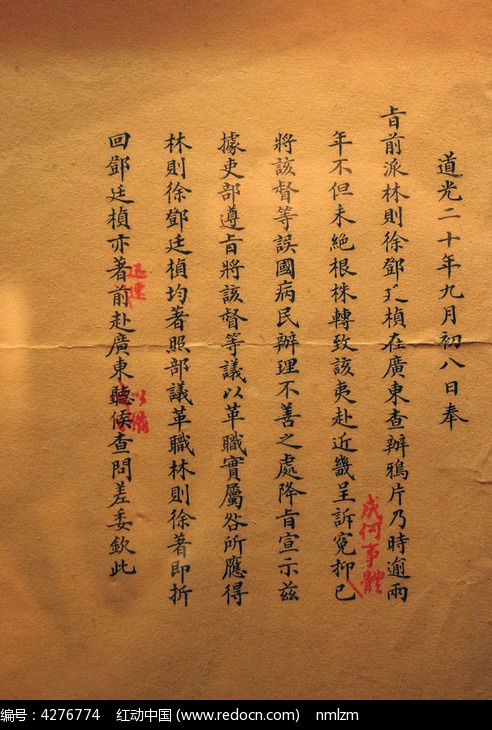 道光二十年九月初八日奉
旨前派林則徐鄧廷楨在廣東查辦鴉片乃時逾兩
年不但未絕根株轉致該夷赴近畿呈訴冤抑已
成何事體
將該督等誤國病民辦理不善之處降旨宣示茲
據吏部遵旨將該督等議以革職實屬咎所應得
林則徐鄧廷楨均著照部議革職林則徐著即折
回鄧廷楨亦著前赴廣東聽候查問差委欽此
迅速
以備
编号：4276774 红动中国 (www.redocn.com) nmlzm